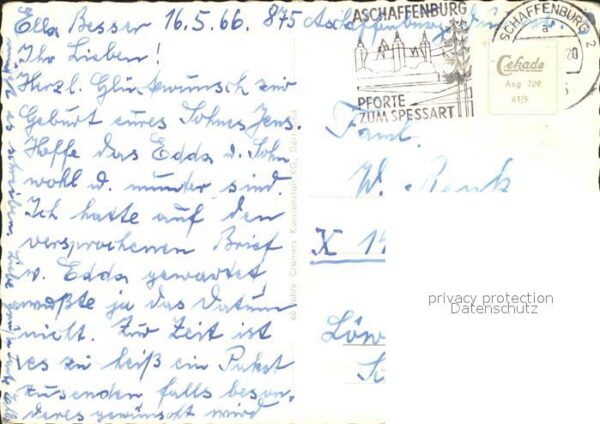 Ella Besser 16.5.66. 875 Aschaffenburg,
Ihr Lieben!
Herzl. Glückwunsch zur
Geburt eures Sohnes Jens.
Hoffe das Edda u. Sohn
wohl u. munter sind.
Ich hatte auf den
versprochenen Brief
v. Edda gewartet,
wußte ja das Datum
nicht. Zur Zeit ist
es zu heiß ein Paket
zusenden falls beson,
deres gewünscht wird
ASCHAFFENBURG
PFORTE
ZUM SPESSART
SCHAFFENBURG 2
a
20
Cekade
Asg 709
61/5
Faml.
W. Renk
X 14
Löw
privacy protection
Datenschutz
60 Jahre Cramers Kunstanstalt KG, Dortmund